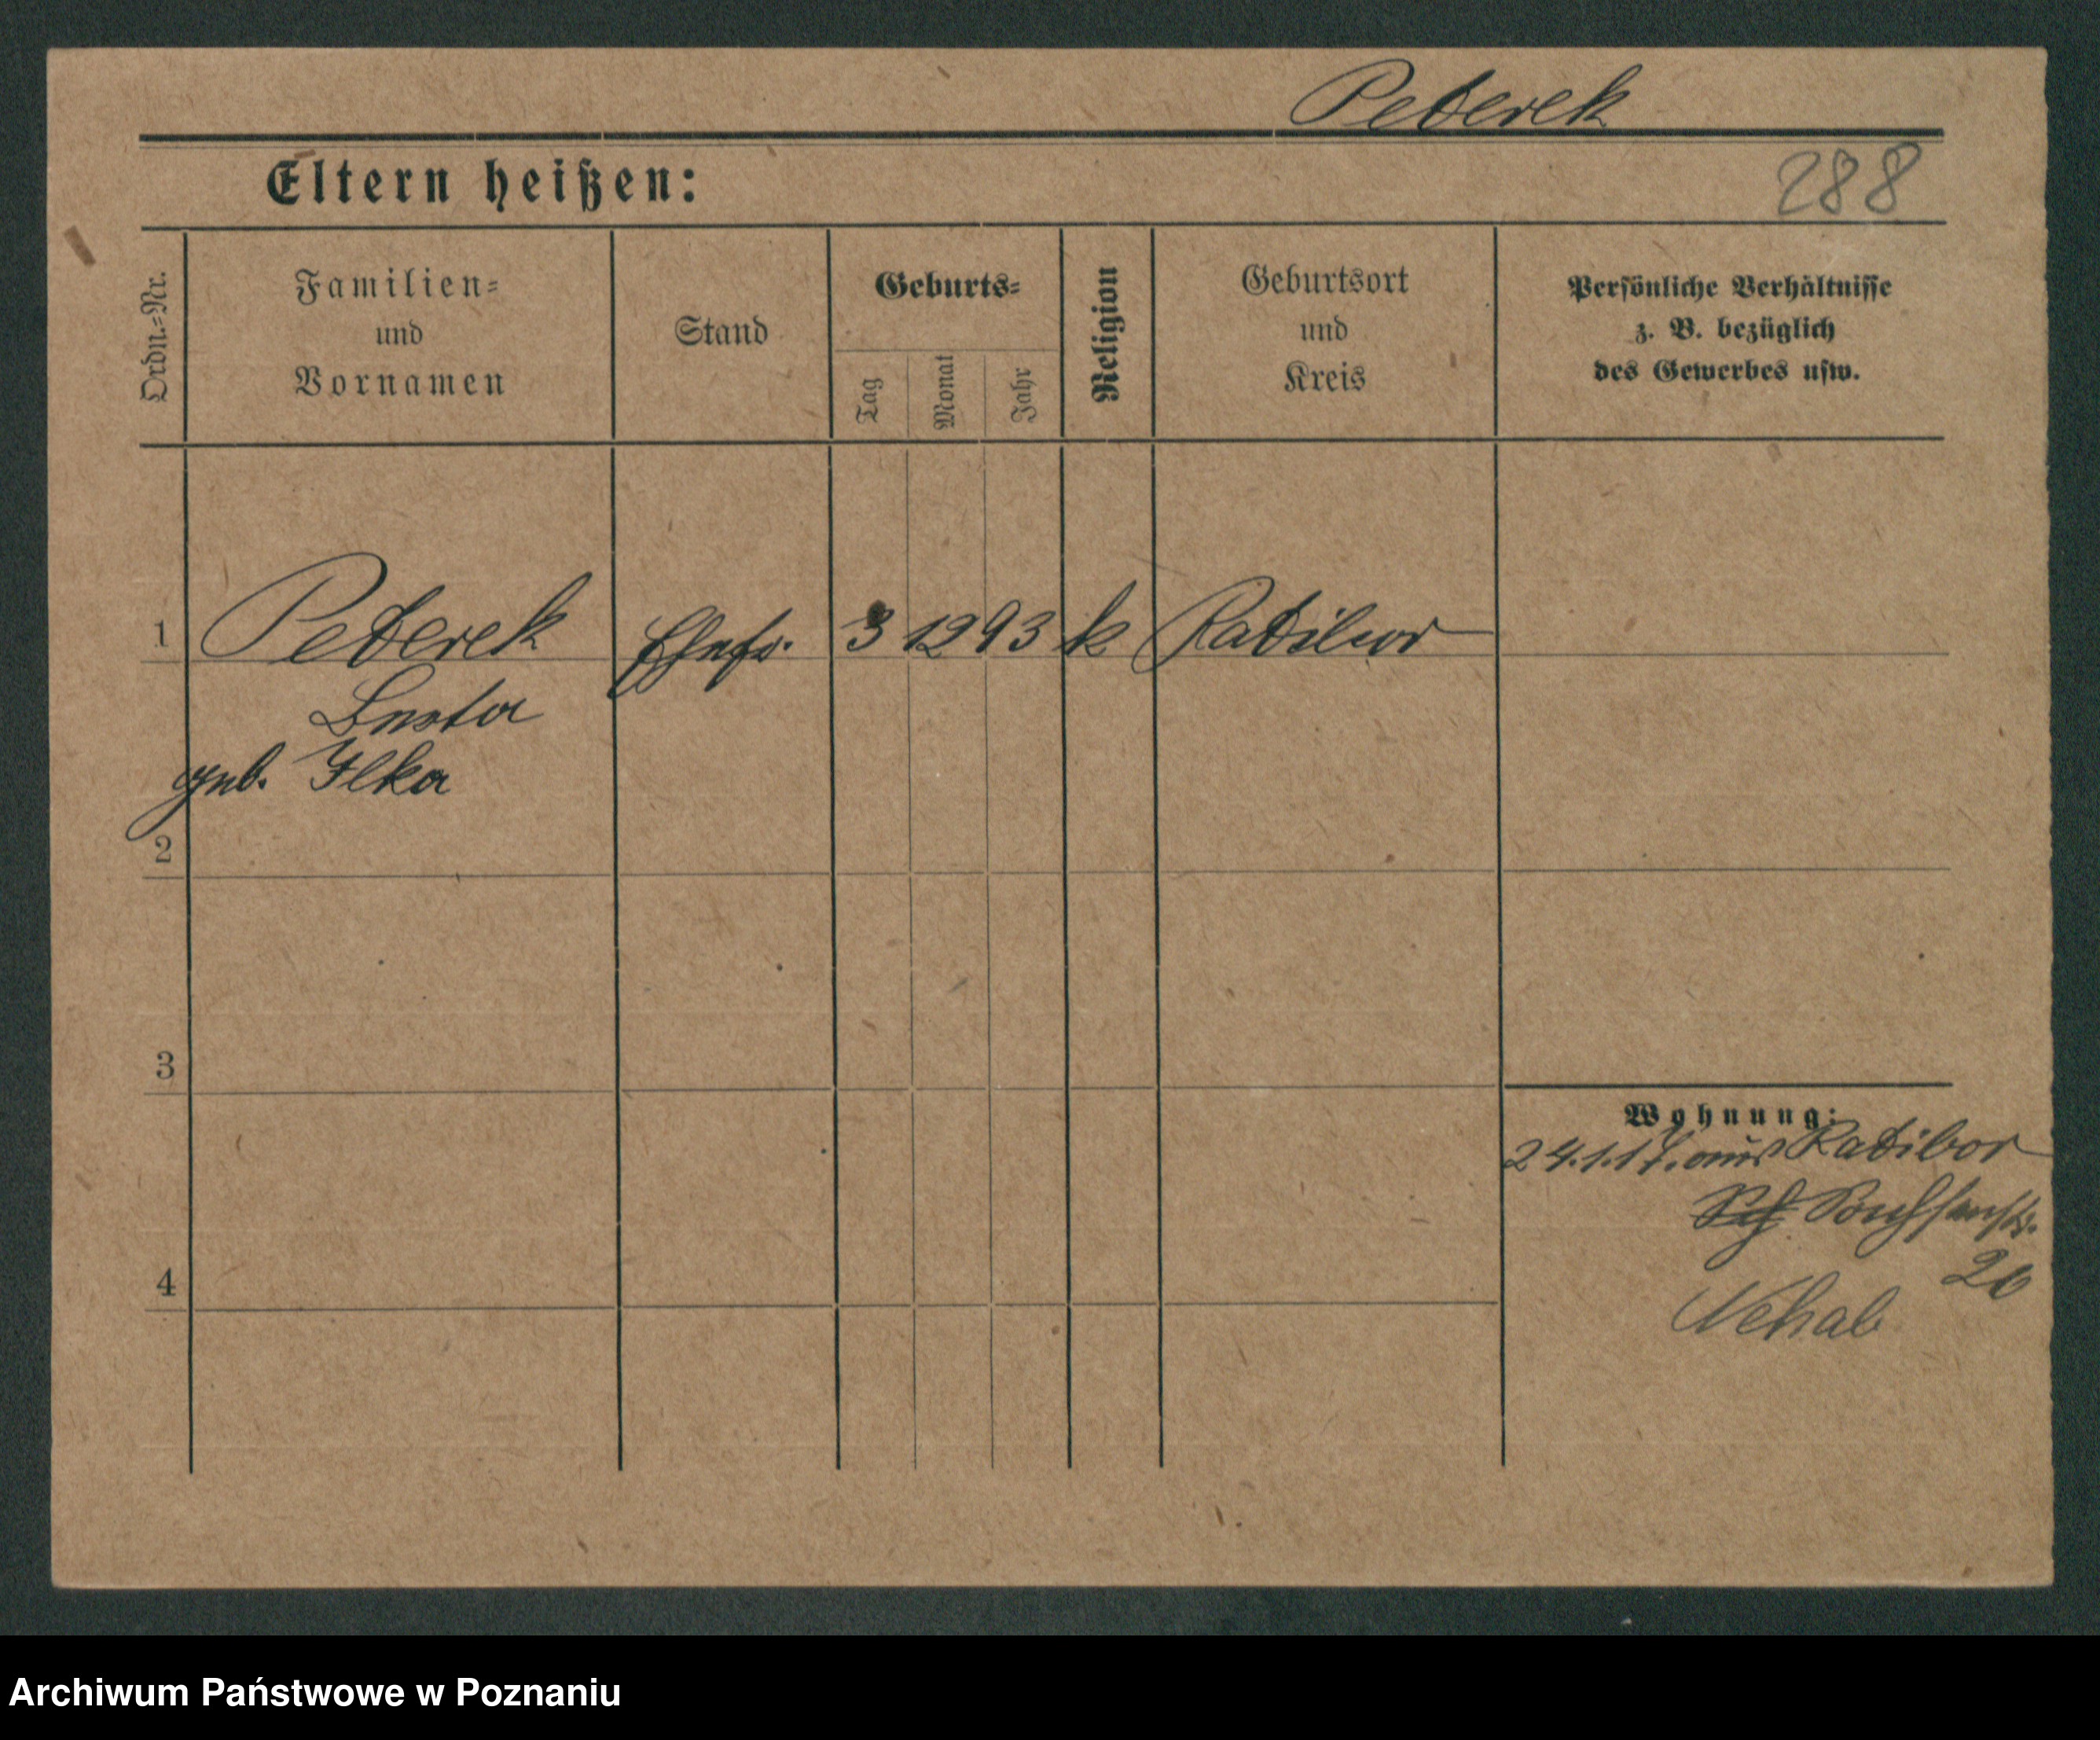 Peterek
Eltern heißen:
288
Ordn.-Nr.
Familien-
und
Vornamen
Stand
Geburts-
Tag
Monat
Jahr
Religion
Geburtsort
und
Kreis
Persönliche Verhältnisse
z. B. bezüglich
des Gewerbes usw.
1 Peterek Ehefr. 3 12 93 k Ratibor
geb. Ilka
2
3
4
Wohnung:
24.1.17. aus Ratibor
20
Nehab
Archiwum Państwowe w Poznaniu